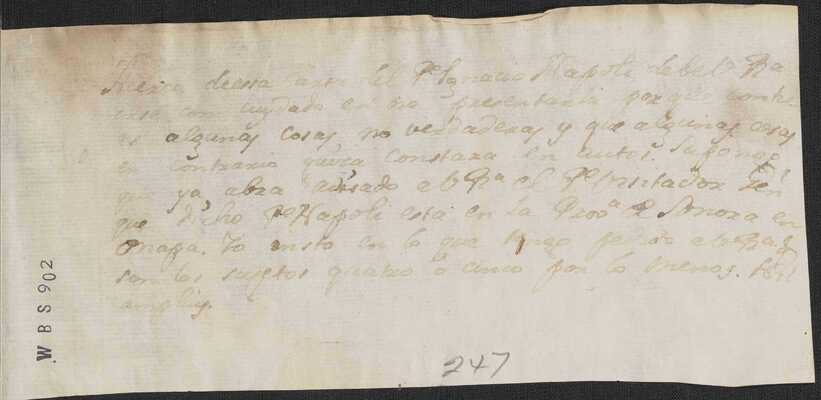 deesta Carta del Pe Ignacio Napoli debe Va Ra
con cuydado en no presentarla porque
algunas cosas no verdaderas y que algunas cosas
en contrario quiza constara en autos. Supongo
que ya abra avisado a Va Ra el Pe Visitador
que dicho Pe Napoli está en la Prova de Sonora en
Yo insto en lo que tengo pedido a Va Ra q
son los sujetos quatro ó cinco por lo menos.
amplius.
247
WBS 902